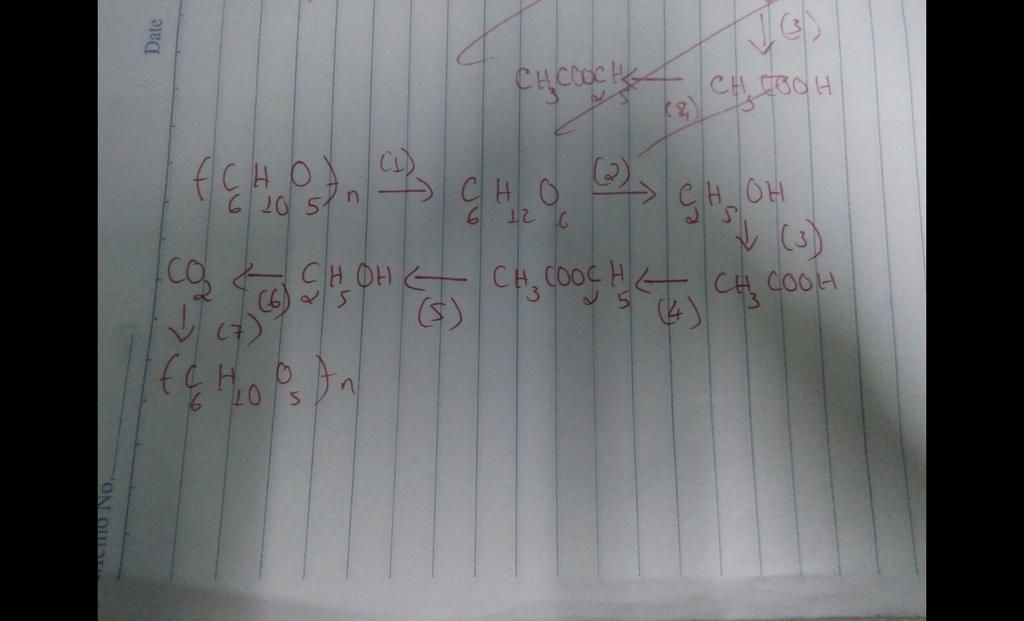 Date
↓ (3)
CH₃COOC₂H₅ ← CH₃COOH
(C₆H₁₀O₅)ₙ (1)→ C₆H₁₂O₆ (2)→ C₂H₅OH
↓ (3)
CO₂ ←(6) C₂H₅OH ←(5) CH₃COOC₂H₅ ←(4) CH₃COOH
↓ (7)
(C₆H₁₀O₅)ₙ
No.